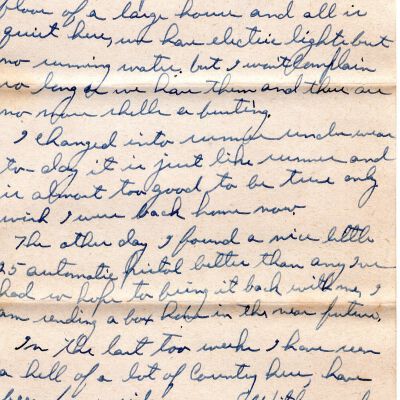 floor of a large house and all is
quiet here, we have electric lights but
no running water, but I won't complain
so long as we have them and there are
no more shells a bursting.
I changed into summer underwear
to-day it is just like summer and
is almost too good to be true only
wish I were back home now.
The other day I found a nice little
25 automatic pistol better than any I've
had so hope to bring it back with me, I
am sending a box home in the near future.
In the last two weeks I have seen
a hell of a lot of Country here, have
been